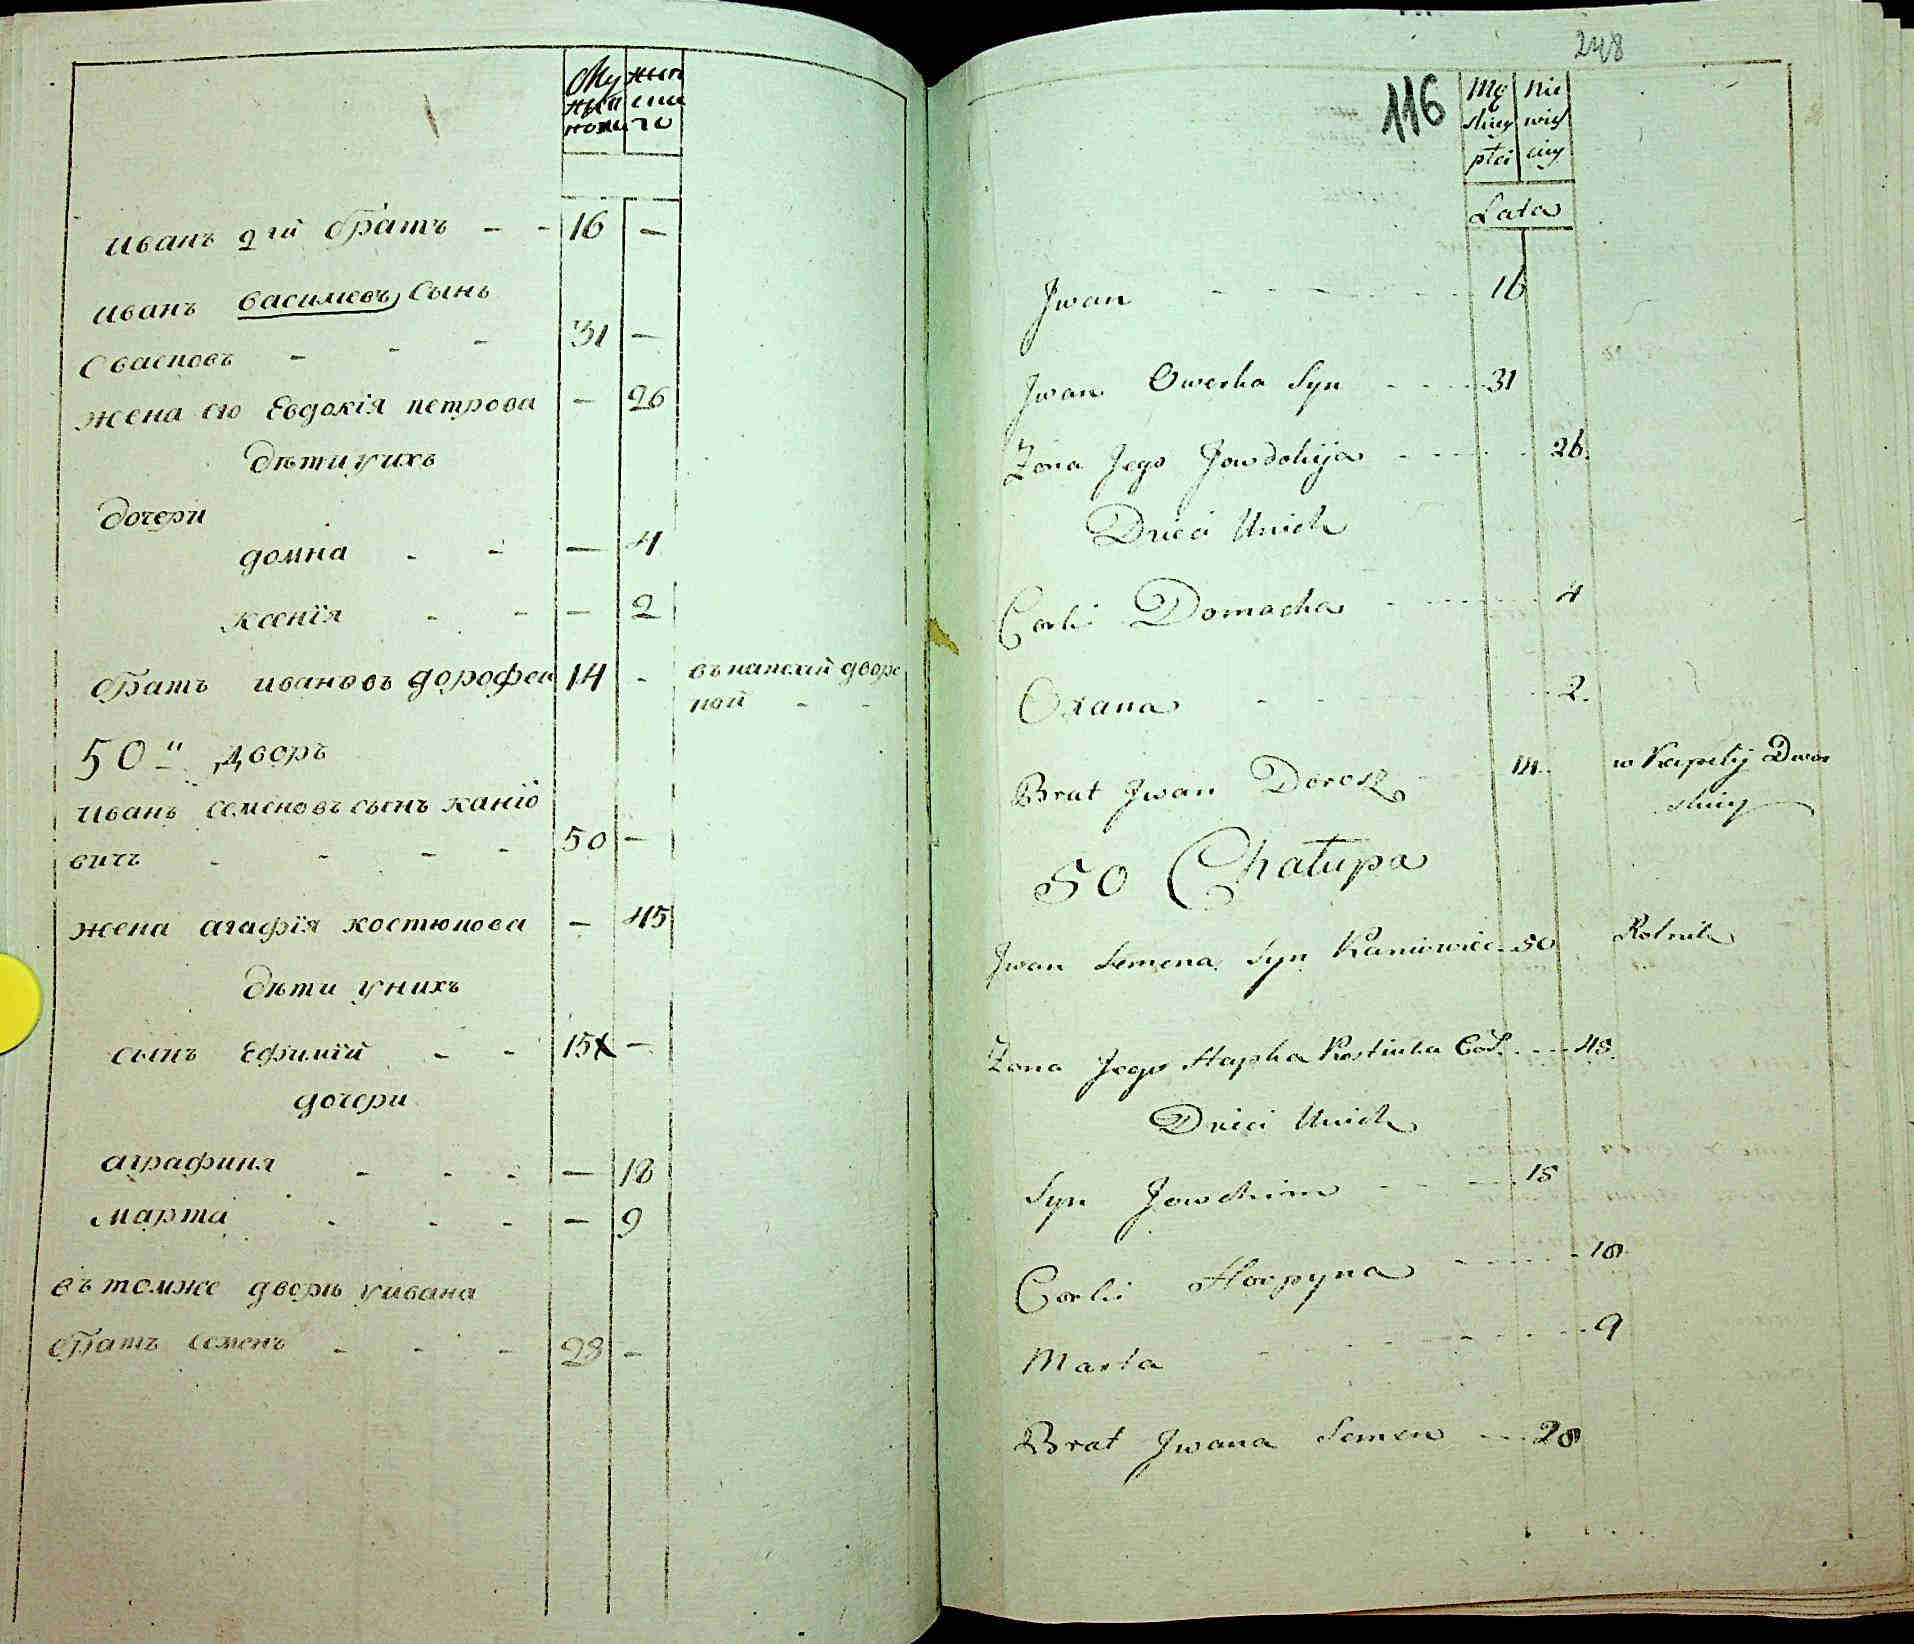 Му жеп
жеп ска
поли го
иванъ 2гй братъ - - 16 -
иванъ василиевъ сынъ
31 -
жена его Евдокія петрова - 26
дѣти у ихъ
дочери
домна - - - 4
ксенія - - - 2
братъ ивановъ дорофеи 14 - въ капелѣй дворс
ной - -
50й дворъ
иванъ семеновъ сынъ каніо
вичъ - - - - 50 -
жена агафія костюкова - 45
дѣти у нихъ
сынъ Ефимій - - 15 -
дочери
аграфиня - - - - 18
марта - - - - 9
въ томже дворѣ у ивана
братъ семенъ - - - 28 -
248
116
Mę Nie
skiey wieś
płci ciey
Lata
Jwan 16
Jwan Owerka Syn 31
Zona Jego Jowdokija 26.
Dzieci Unich
Corki Domacha 4
Oxana 2.
Brat Jwan Dorosz 14. w Kapelij Dwor
skiey
50 Chałupa
Jwan Semena Syn Kaniowiec 50 Rolnik
Zona Jego Hapka Kostiuka Cór. 45.
Dzieci Unich
Syn Jowchim 15
Corki Horpyna 18.
Marta 9
Brat Jwana Semen 28